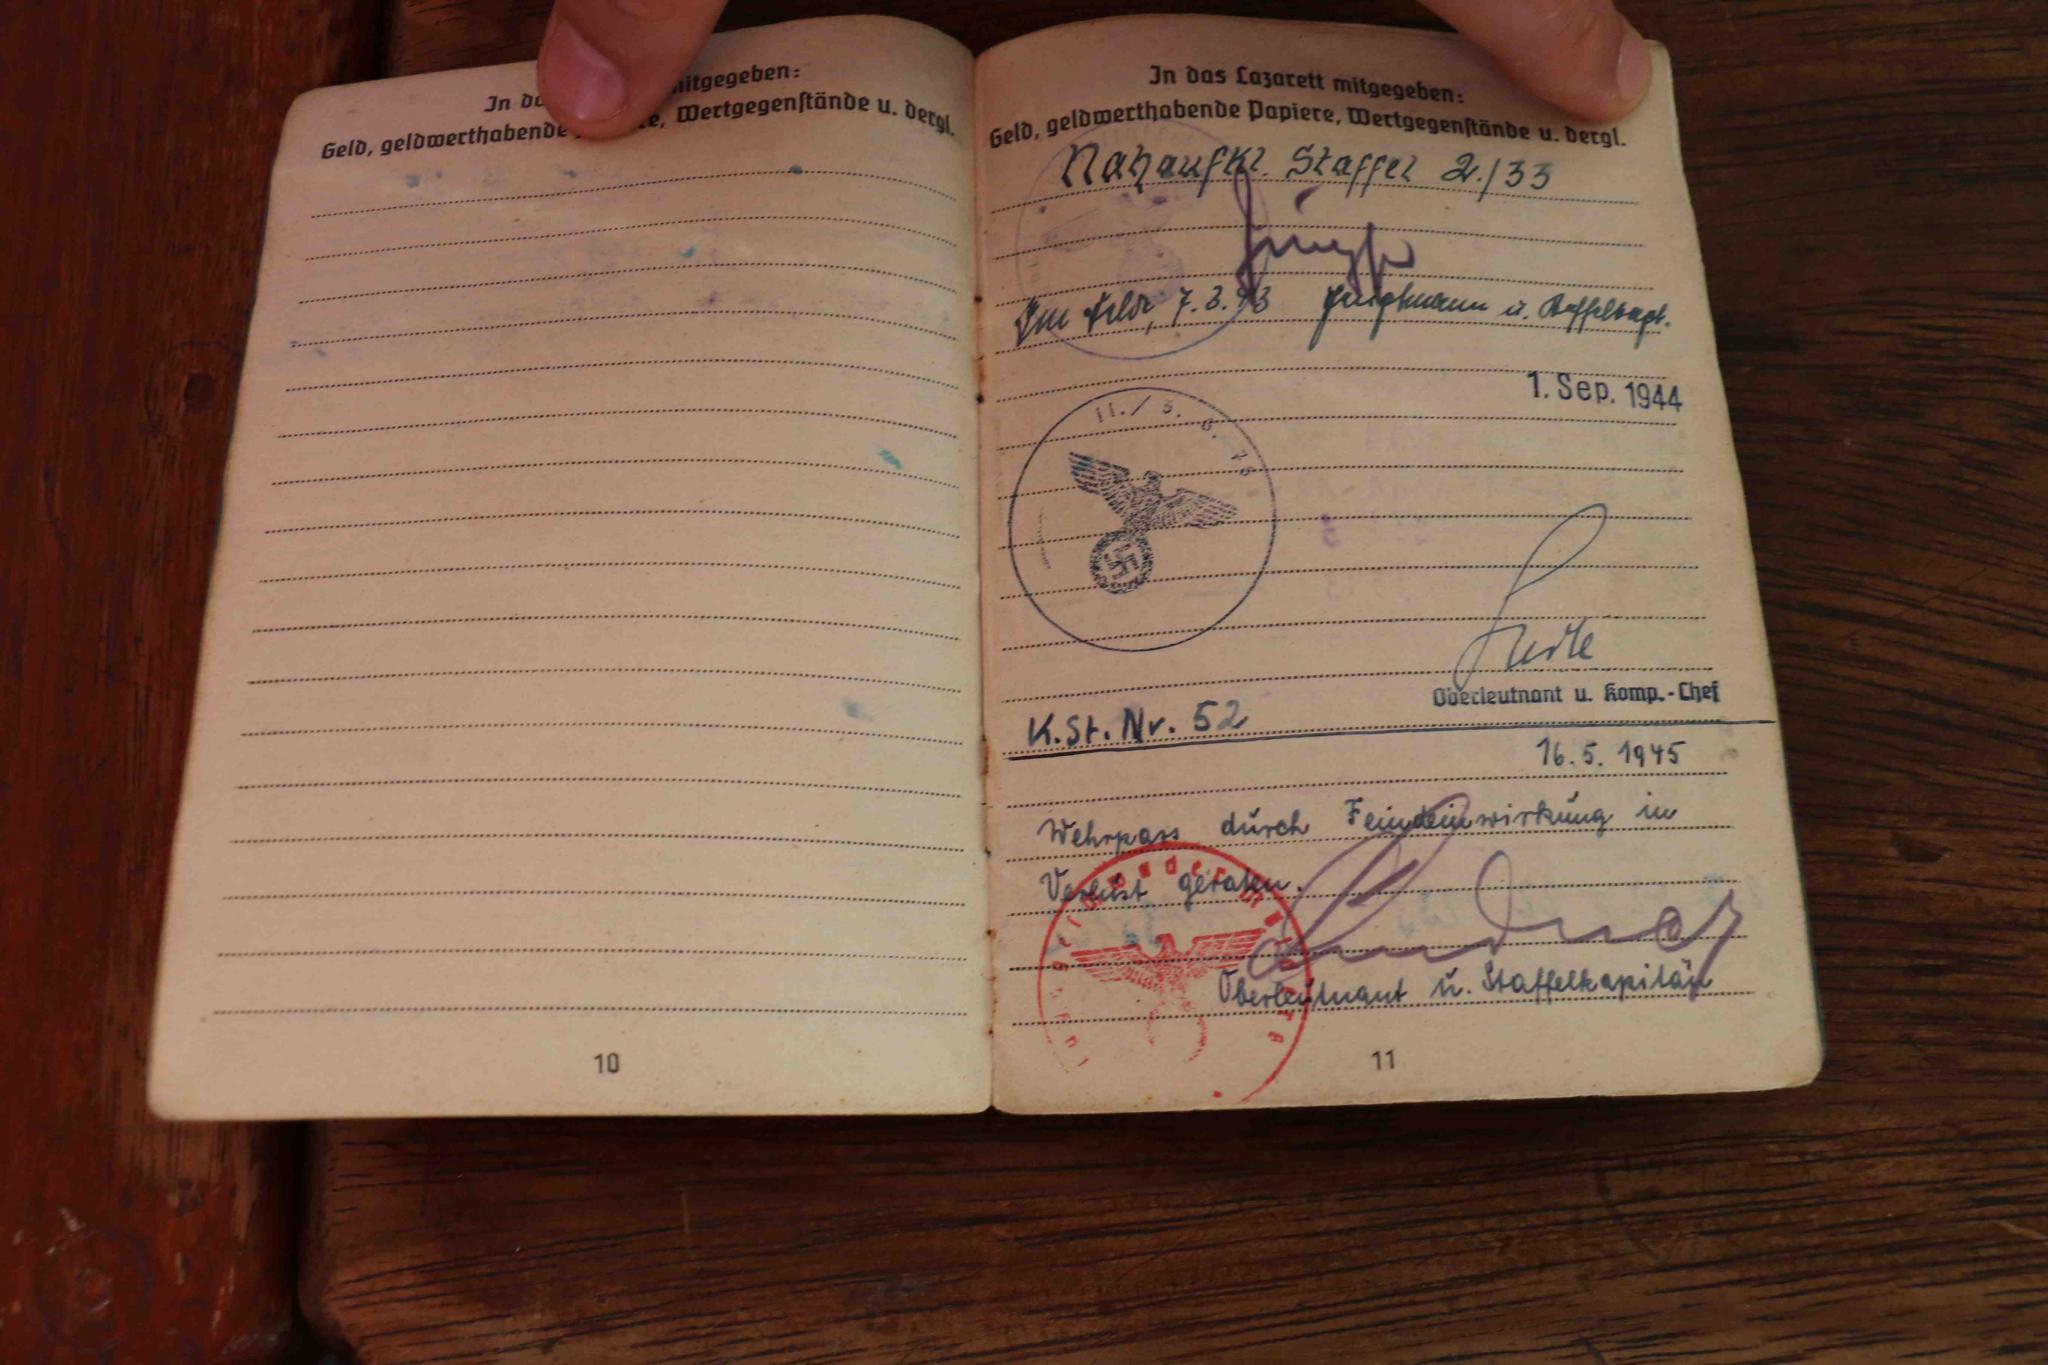 In mitgegeben:
Geld, geldwerthabende Wertgegenstände u. dergl.
10
In das Lazarett mitgegeben:
Geld, geldwerthabende Papiere, Wertgegenstände u. dergl.
Nahaufkl. Staffel 2./33
Im Felde, 7.3.43 Hauptmann u.
1. Sep. 1944
II./ 3.
Oberleutnant u. Komp.-Chef
K.St.Nr. 52
16.5.1945
Wehrpass durch Feindeinwirkung in
Verlust geraten.
Oberleutnant u. Staffelkapitän
11